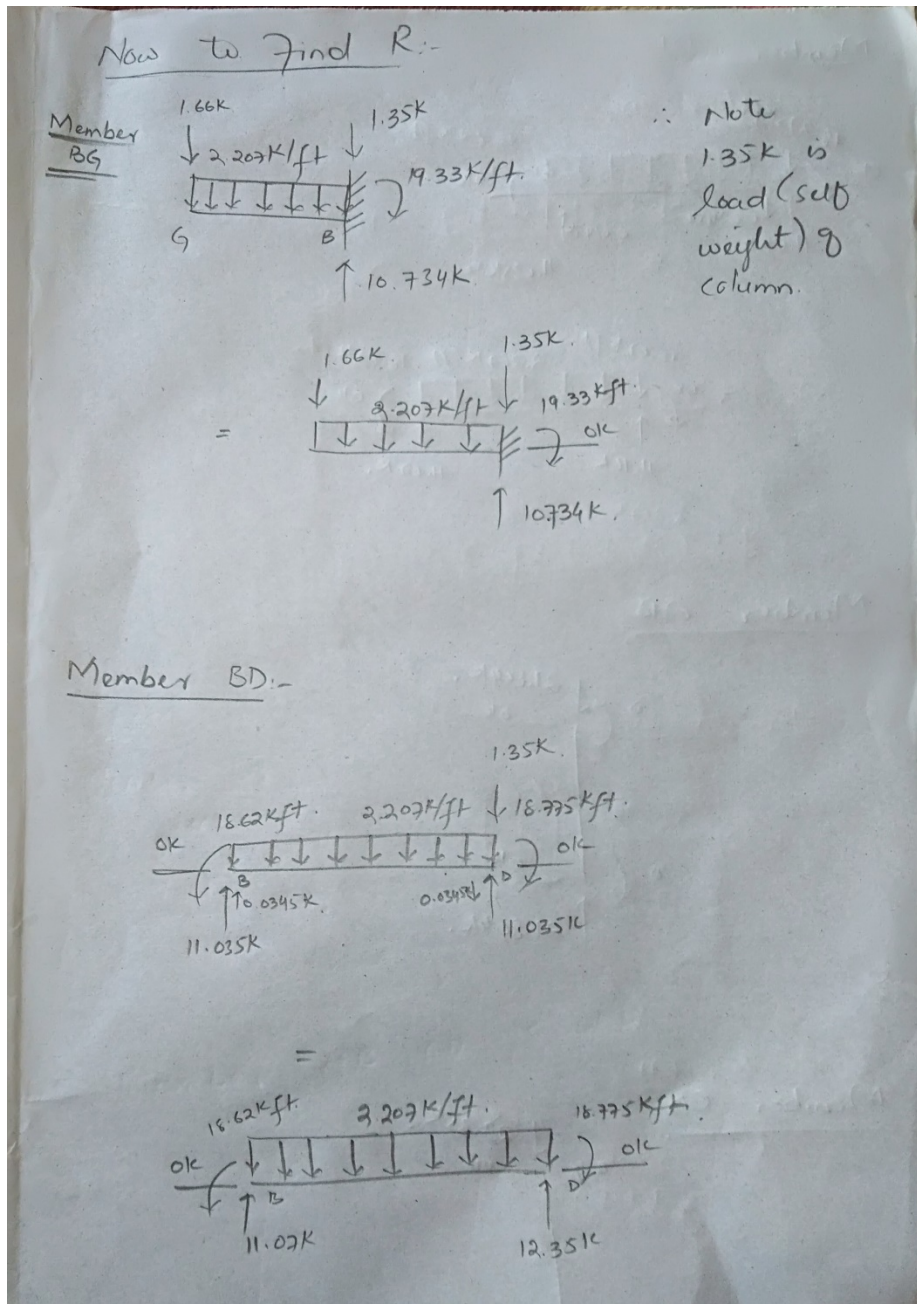 Now to Find R:-
Member
BG
1.66K
1.35K
2.207K/ft
19.33K/ft.
G
B
10.734K
∴ Note
1.35K is
load (self
weight) of
column.
=
1.66K.
1.35K.
2.207K/ft
19.33Kft.
0K
10.734K.
Member BD:-
1.35K.
18.62Kft.
2.207K/ft
18.775Kft.
0K
0K
B
D
0.0345K
0.0345K
11.035K
11.035K
=
18.62Kft.
2.207K/ft.
18.775Kft.
0K
0K
B
D
11.07K
12.35K